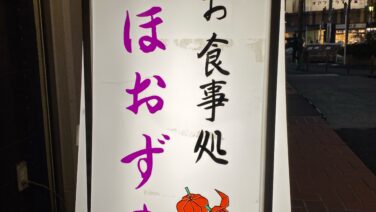 お食事処
ほおず